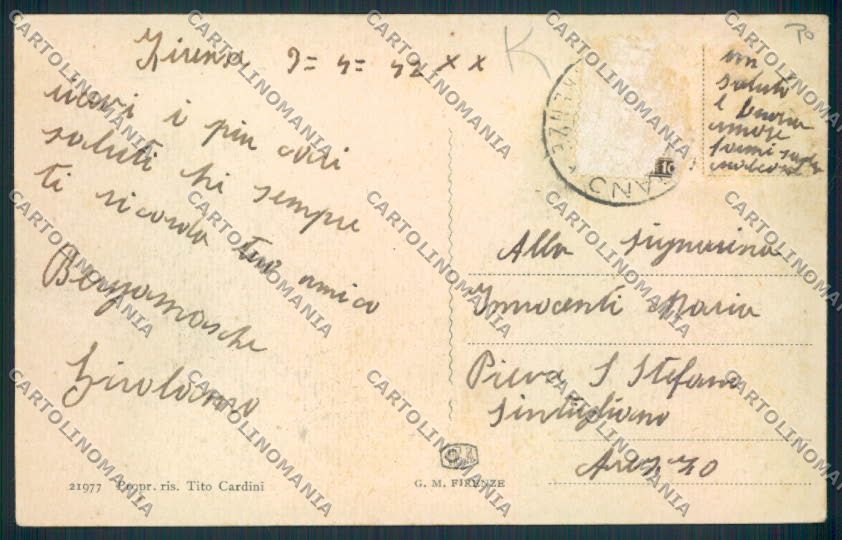 Firenze 9 = 4 = 42 XX
ricevi i più cari
saluti chi sempre
ti ricorda tuo amico
Bergamasche
Girolamo
un
saluto
e buona
amore
Alla Signorina
Innocenti Maria
Pieva S Stefano
Sintigliano
Arezzo
21977 Propr. ris. Tito Cardini
G. M. FIRENZE
10
CARTOLINOMANIA